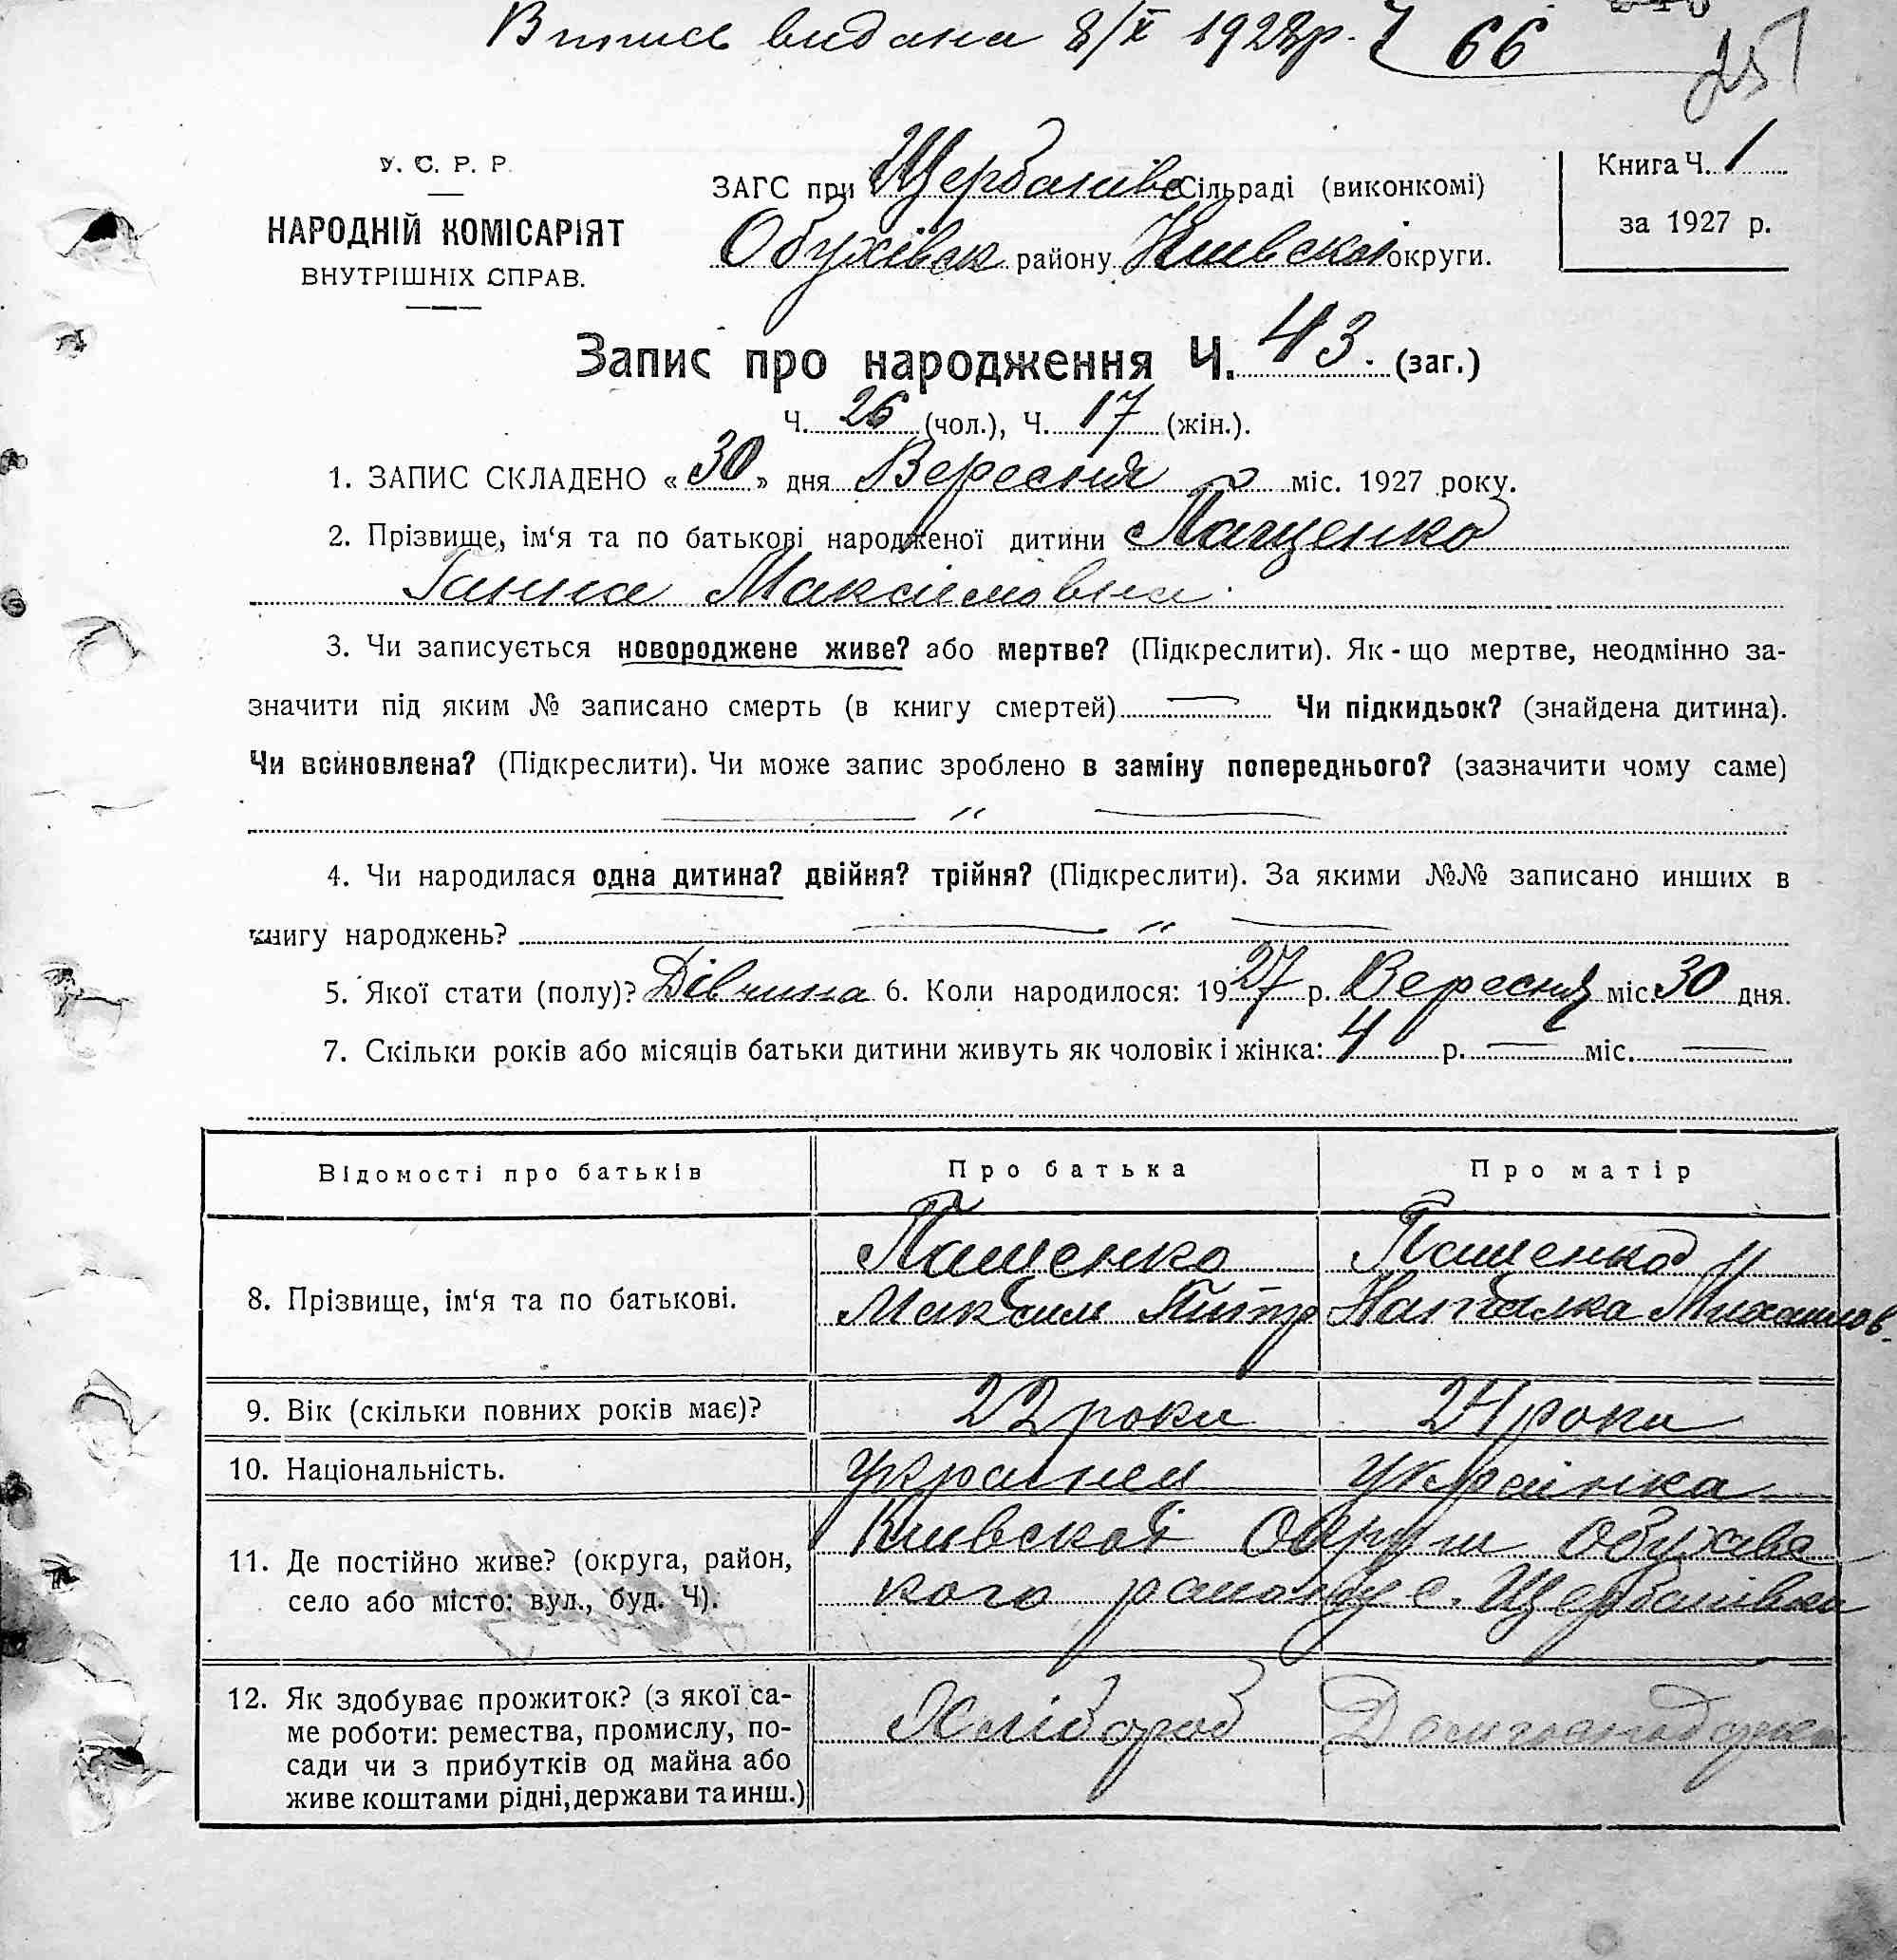 Витись видана 8/X 1928р. Ч 66
25
У. С. Р. Р.
НАРОДНІЙ КОМІСАРІЯТ
ВНУТРІШНІХ СПРАВ.
ЗАГС при Щербанівс сільраді (виконкомі)
Обухівськ району Київської округи.
Книга Ч. 1
за 1927 р.
Запис про народження Ч. 43. (заг.)
Ч. 26 (чол.), Ч. 17 (жін.).
1. ЗАПИС СКЛАДЕНО «30» дня Вересня міс. 1927 року.
2. Прізвище, ім‘я та по батькові народженої дитини Пащенко
Ганна Максимовна.
3. Чи записується новороджене живе? або мертве? (Підкреслити). Як-що мертве, неодмінно за-
значити під яким № записано смерть (в книгу смертей) — Чи підкидьок? (знайдена дитина).
Чи всиновлена? (Підкреслити). Чи може запис зроблено в заміну попереднього? (зазначити чому саме)
— „ —
4. Чи народилася одна дитина? двійня? трійня? (Підкреслити). За якими №№ записано инших в
книгу народжень? — „ —
5. Якої стати (полу)? Дівчина 6. Коли народилося: 1927 р. Вересня міс. 30 дня.
7. Скільки років або місяців батьки дитини живуть як чоловік і жінка: 4 р. — міс. —
Відомості про батьків Про батька Про матір
8. Прізвище, ім‘я та по батькові.
Пащенко Пащенко
Максим Питр Наталка Михайлов.
9. Вік (скільки повних років має)? 22 роки 24 роки
10. Національність. Украінец Українка
11. Де постійно живе? (округа, район,
село або місто: вул., буд. Ч).
Київської Округи Обухівс
кого району с. Щербанівка
12. Як здобуває прожиток? (з якої са-
ме роботи: ремества, промислу, по-
сади чи з прибутків од майна або
живе коштами рідні, держави та инш.)
Хлібороб Домгосподарка